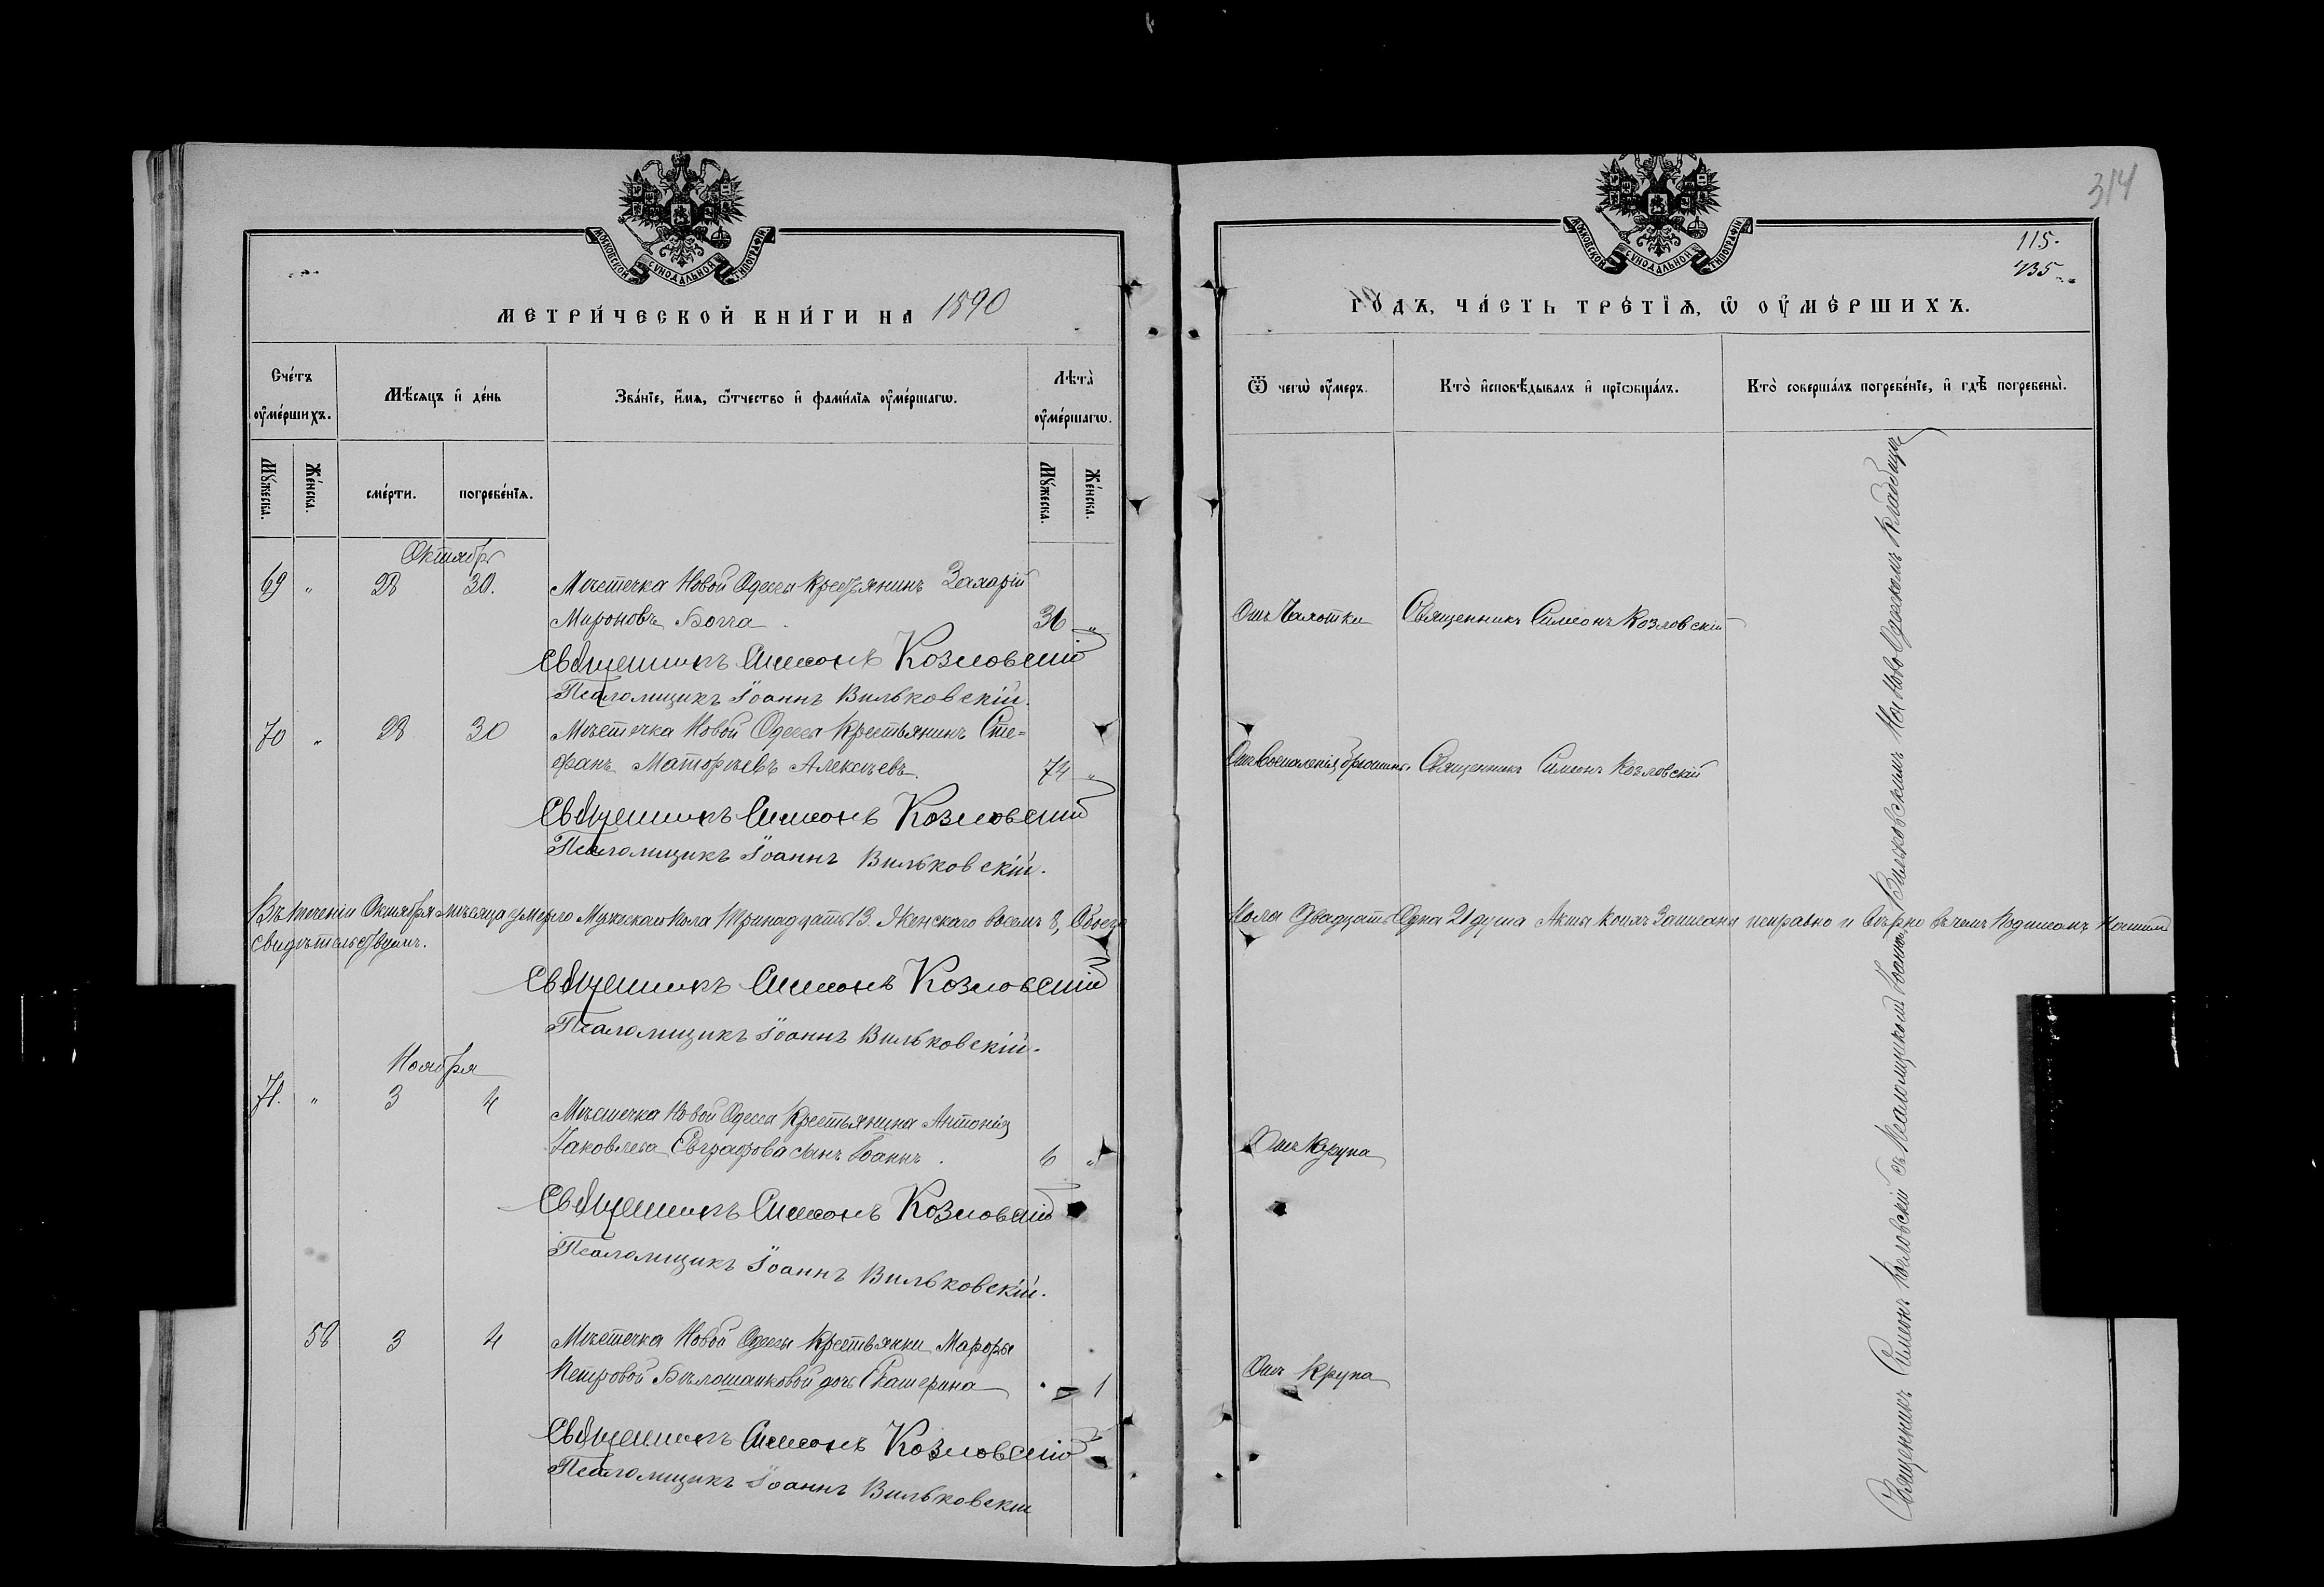 МОСКОВСКОЙ СУНОДАЛЬНОЙ ТИПОГРАФІИ
МЕТРИЧЕСКОЙ КНИГИ НА 1890
Счетъ оумершихъ.
Мѣсяцъ и день
Званіе, имя, отчество и фамилія оумершагѡ.
Лѣта оумершагѡ.
Мужеска.
Женска.
смерти.
погребенія.
Мужеска.
Женска.
Октябрь
69 " 28 30. Мѣстечка Новой Одессы Крестьянинъ Захарій
Мироновъ Богза. 36 "
Священникъ Симеонъ Козловскій
Псаломщикъ Іоаннъ Вильковскій.
70 " 28 30 Мѣстечка Новой Одессы Крестьянинъ Сте=
фанъ Матѳѣевъ Алексѣевъ. 74 "
Священникъ Симеонъ Козловскій
Псаломщикъ Іоаннъ Вильковскій.
Въ теченіи Октября мѣсяца умерло Мужескаго пола Тринадцать 13. Женскаго восемь 8, Обоего
свидѣтельствуемъ.
Священникъ Симеонъ Козловскій
Псаломщикъ Іоаннъ Вильковскій.
Ноября
71. " 3 4
Мѣстечка Новой Одессы Крестьянина Антонія
Іаковлева Евграфова сынъ Іоаннъ. 6 "
Священникъ Симеонъ Козловскій
Псаломщикъ Іоаннъ Вильковскій.
58 3 4 Мѣстечка Новой Одессы Крестьянки Марѳы
Петровой Бѣлошапковой дочь Екатерина 1
Священникъ Симеонъ Козловскій
Псаломщикъ Іоаннъ Вильковскій
314
115.
435
МОСКОВСКОЙ СУНОДАЛЬНОЙ ТИПОГРАФІИ
ГОДЪ, ЧАСТЬ ТРЕТІЯ, Ѡ ОУМЕРШИХЪ.
Ѿ чегѡ оумеръ.
Кто исповѣдывалъ и пріѡбщалъ.
Кто совершалъ погребеніе, и гдѣ погребены.
Отъ Чахотки Священникъ Симеонъ Козловскій
Отъ Воспаленія Священникъ Симеонъ Козловскій
пола Двадцать Одна 21 душа Акты коимъ Записаны исправно и Вѣрно въ чемъ Подписомъ Нашимъ
Отъ Крупа
Отъ Крупа
Священникъ Симеонъ Козловскій съ Псаломщикомъ Іоанномъ Вильковскимъ На Ново Одесскомъ Кладбище